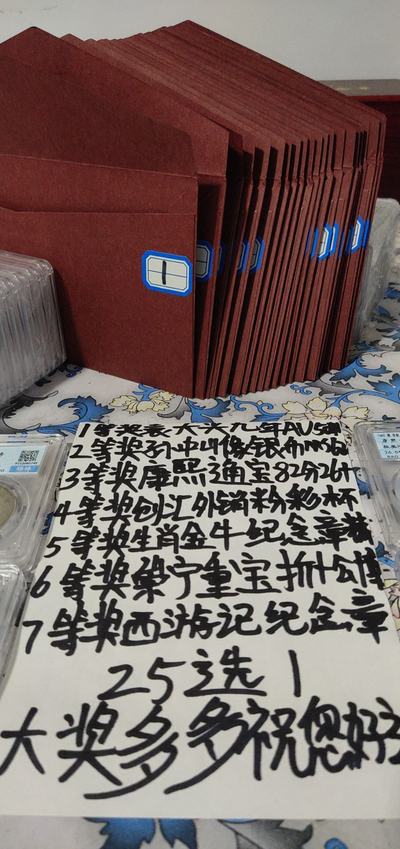 1
1等奖袁大头九年AU5
2等奖孙中山像银币MS62
3等奖康熙通宝82分26
4等奖创汇外销粉彩杯
5等奖生肖金牛纪念章
6等奖崇宁重宝折十公博
7等奖西游记纪念章
25选1
大奖多多祝您好